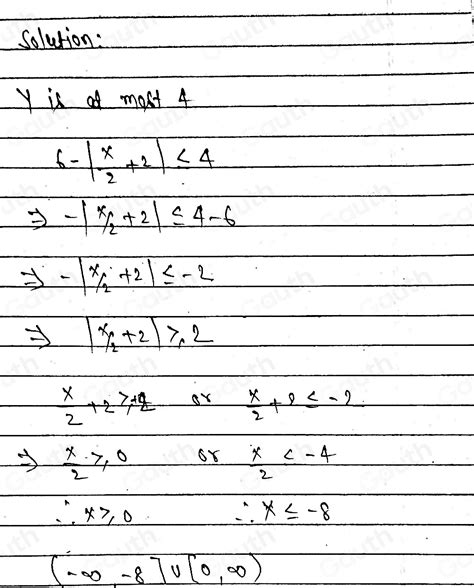 Solution:
Y is at most 4
6-|x/2+2| ≤ 4
⇒ -|x/2+2| ≤ 4-6
⇒ -|x/2+2| ≤ -2
⇒ |x/2+2| ≥ 2
x/2+2 ≥ +2 or x/2+2 ≤ -2
⇒ x/2 ≥ 0 or x/2 ≤ -4
∴ x ≥ 0 ∴ x ≤ -8
(-∞, -8] ∪ [0, ∞)